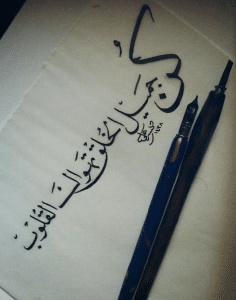 كن جميل الخلق تهواك القلوب